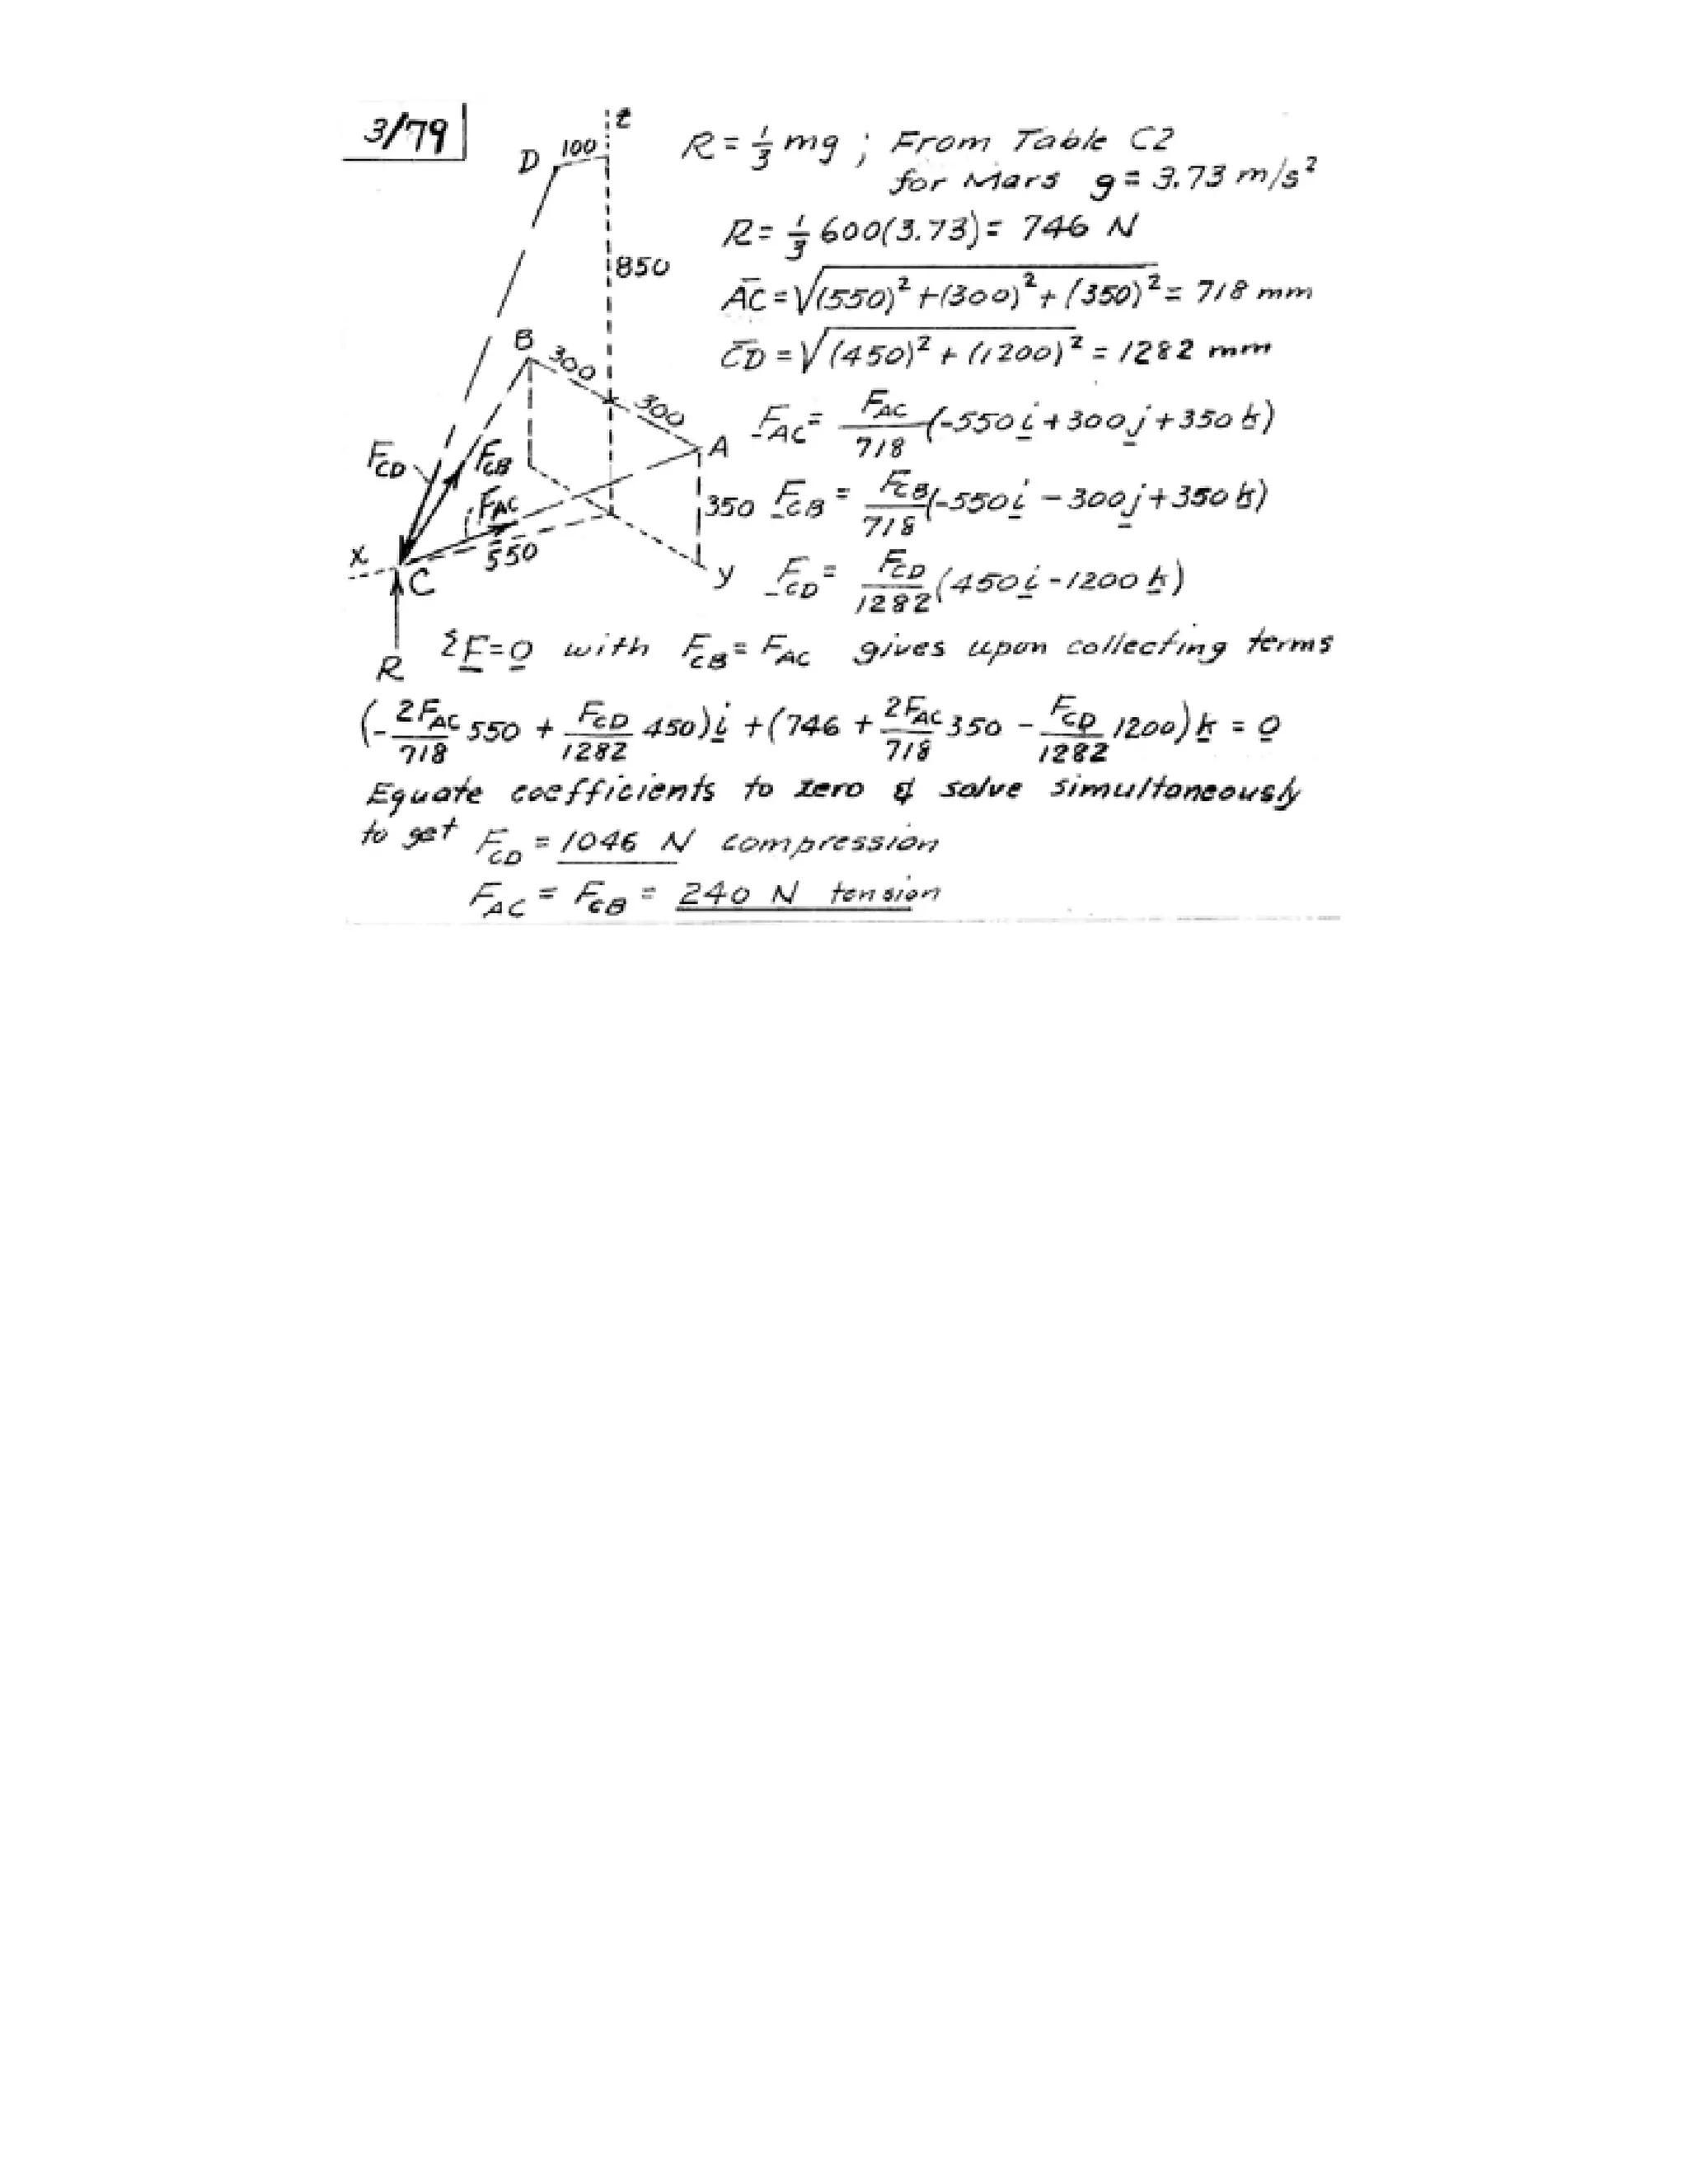 3/79
z
D 100
850
B 300
300
A
F_CD F_CB
F_AC
350
550
X C y
R
R = 1/3 mg ; From Table C2
for Mars g = 3.73 m/s²
R = 1/3 600(3.73) = 746 N
A̅C̅ = √((550)² + (300)² + (350)²) = 718 mm
C̅D̅ = √((450)² + (1200)²) = 1282 mm
F_AC = F_AC/718 (-550 i + 300 j + 350 k)
F_CB = F_CB/718 (-550 i - 300 j + 350 k)
F_CD = F_CD/1282 (450 i - 1200 k)
ΣF = 0 with F_CB = F_AC gives upon collecting terms
(- 2F_AC/718 550 + F_CD/1282 450) i + (746 + 2F_AC/718 350 - F_CD/1282 1200) k = 0
Equate coefficients to zero & solve simultaneously
to get F_CD = 1046 N compression
F_AC = F_CB = 240 N tension